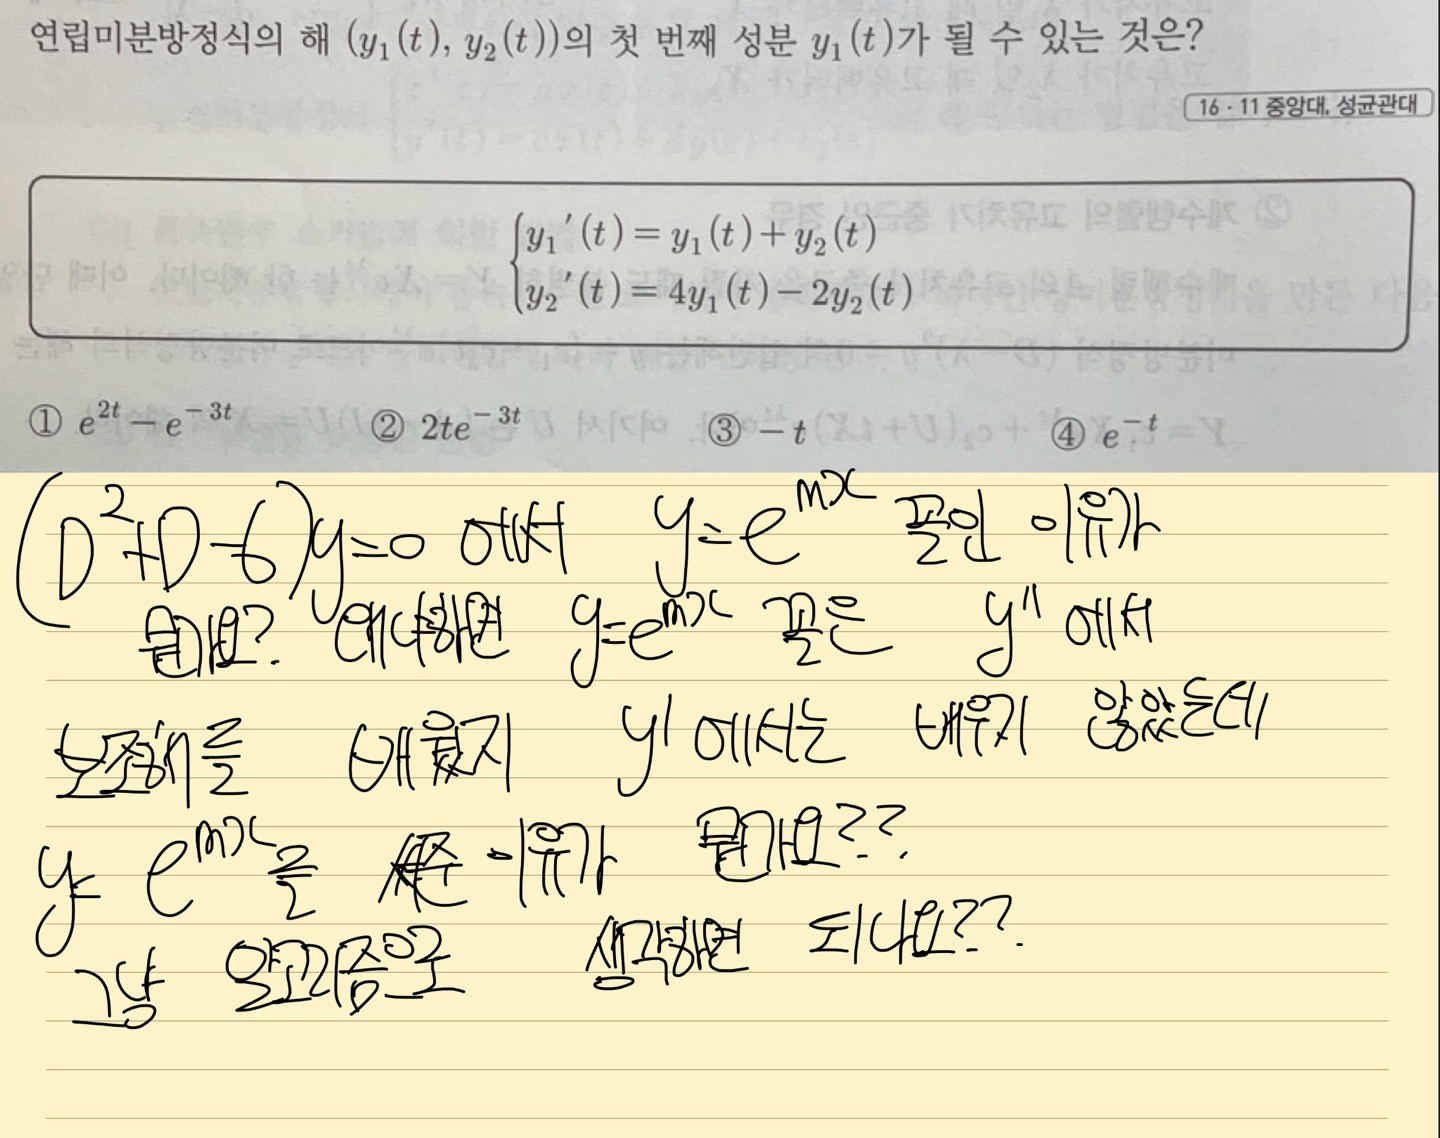 연립미분방정식의 해 (y₁(t), y₂(t))의 첫 번째 성분 y₁(t)가 될 수 있는 것은?
16 · 11 중앙대, 성균관대
y₁′(t) = y₁(t) + y₂(t)
y₂′(t) = 4y₁(t) − 2y₂(t)
① e^{2t} − e^{−3t} ② 2te^{−3t} ③ −t ④ e^{−t}
(D²+D-6)y=0 에서 y=e^{mx} 꼴인 이유가
뭔가요? 왜냐하면 y=e^{mx} 꼴은 y″에서
보조해를 배웠지 y′에서는 배우지 않았는데
y= e^{mx}를 쓰는 이유가 뭔가요??
그냥 알고리즘으로 생각하면 되나요??